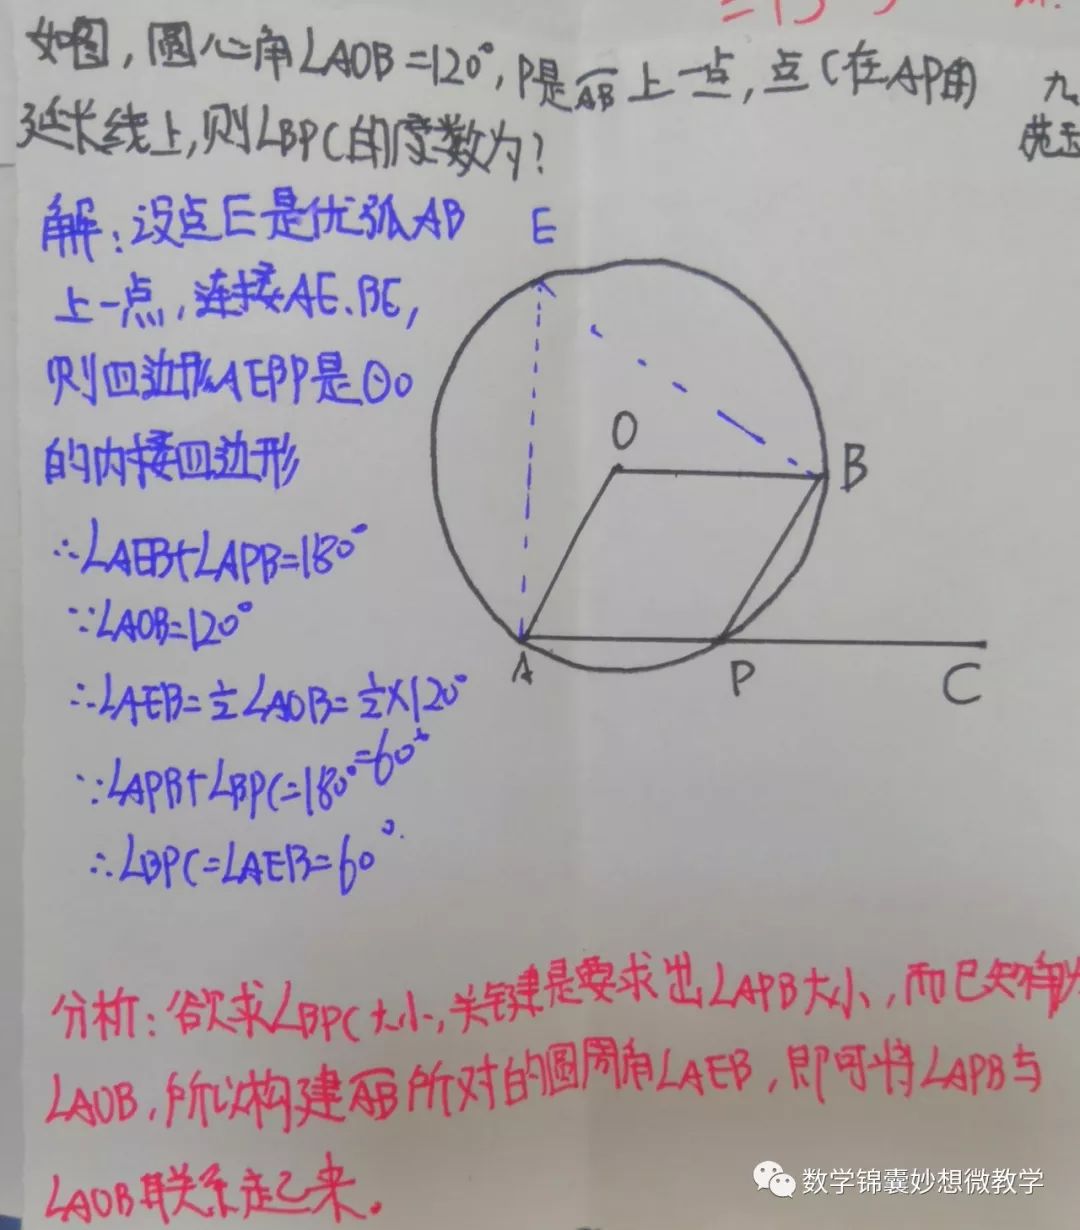 如图，圆心角∠AOB=120°，P是AB上一点，点C在AP的
延长线上，则∠BPC的度数为？
九
解：设点E是优弧AB
上一点，连接AE、BE，
则四边形AEBP是⊙O
的内接四边形
∴∠AEB+∠APB=180°
∵∠AOB=120°
∴∠AEB=½∠AOB=½×120°
=60°
∵∠APB+∠BPC=180°
∴∠BPC=∠AEB=60°.
E
O
B
A
P
C
分析：欲求∠BPC大小，关键是要求出∠APB大小，而已知角为
∠AOB，所以构建AB所对的圆周角∠AEB，即可将∠APB与
∠AOB联系起来。
数学锦囊妙想微教学